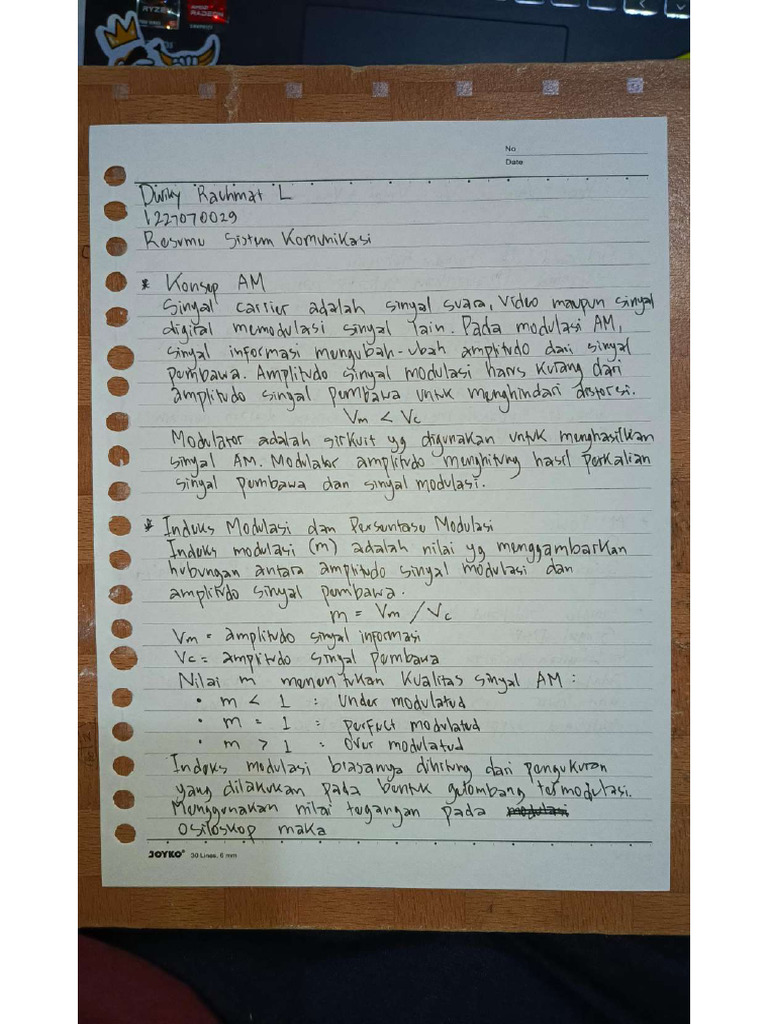 RYZEN
AMD
RADEON
No
Date
Dwiky Rachmat L
1227070029
Resume Sistem Komunikasi
* Konsep AM
Sinyal carrier adalah sinyal suara, video maupun sinyal
digital memodulasi sinyal lain. Pada modulasi AM,
sinyal informasi mengubah-ubah amplitudo dari sinyal
pembawa. Amplitudo sinyal modulasi harus kurang dari
amplitudo sinyal pembawa untuk menghindari distorsi.
Vm < Vc
Modulator adalah sirkuit yg digunakan untuk menghasilkan
sinyal AM. Modulator amplitudo menghitung hasil perkalian
sinyal pembawa dan sinyal modulasi.
* Indeks Modulasi dan Persentase Modulasi
Indeks modulasi (m) adalah nilai yg menggambarkan
hubungan antara amplitudo sinyal modulasi dan
amplitudo sinyal pembawa.
m = Vm / Vc
Vm = amplitudo sinyal informasi
Vc = amplitudo sinyal pembawa
Nilai m menentukan kualitas sinyal AM :
• m < 1 : under modulated
• m = 1 : perfect modulated
• m > 1 : over modulated
Indeks modulasi biasanya dihitung dari pengukuran
yang dilakukan pada bentuk gelombang termodulasi.
Menggunakan nilai tegangan pada modulasi
Osiloskop maka
JOYKO® 30 Lines, 6 mm